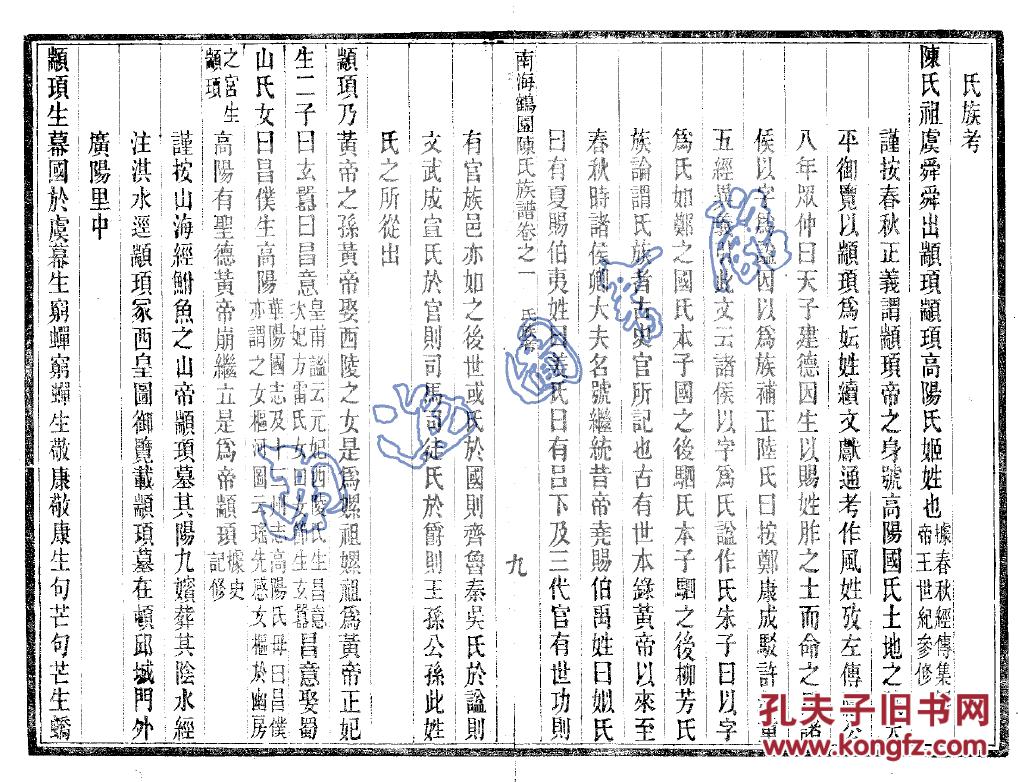 氏族考
陳氏祖虞舜舜出顓頊顓頊高陽氏姬姓也據春秋經傳集帝王世紀參修
謹按春秋正義謂顓頊帝之身號高陽國氏土地之
平御覽以顓頊爲妘姓續文獻通考作風姓攷左傳公
八年眾仲曰天子建德因生以賜姓胙之土而命之諸
侯以字爲謚因以爲族補正陸氏曰按鄭康成駁許
五經異義此文云諸侯以字爲氏謚作氏朱子曰以字
爲氏如鄭之國氏本子國之後駟氏本子駟之後柳芳氏
族論謂氏族者古史官所記也古有世本錄黃帝以來至
春秋時諸侯卿大夫名號繼統昔帝堯賜伯禹姓曰姒氏
曰有夏賜伯夷姓曰姜氏曰有呂下及三代官有世功則
南海鶴園陳氏族譜卷之一 氏族考 九
有官族邑亦如之後世或氏於國則齊魯秦吳氏於謚則
文武成宣氏於官則司馬司徒氏於爵則王孫公孫此姓
氏之所從出
顓頊乃黃帝之孫黃帝娶西陵之女是爲嫘祖嫘祖爲黃帝正妃
生二子曰玄囂曰昌意皇甫謚云元妃西陵氏生昌意次妃方雷氏女曰女節生玄囂昌意娶蜀
山氏女曰昌僕生高陽華陽國志及十三州志高陽氏母曰昌僕亦謂之女樞河圖云瑤光感女樞於幽房
之宮生顓頊高陽有聖德黃帝崩繼立是爲帝顓頊據史記修
謹按山海經鮒魚之山帝顓頊墓其陽九嬪葬其陰水經
注淇水逕顓頊冢西皇圖御覽載顓頊墓在頓邱城門外
廣陽里中
顓頊生幕國於虞幕生窮蟬窮蟬生敬康敬康生句芒句芒生蟜
孔夫子旧书网
www.kongfz.com